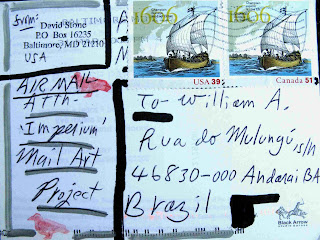 from:
David Stone
P.O. Box 16235
Baltimore, MD 21210
USA
1606
1606
USA 39
Canada 51
AIR MAIL
Attn-
'Imperium'
Mail Art
Project
To- William A.
Rua do Mulungú, s/n
46830-000 Andarai BA
Brazil
Black Arrow